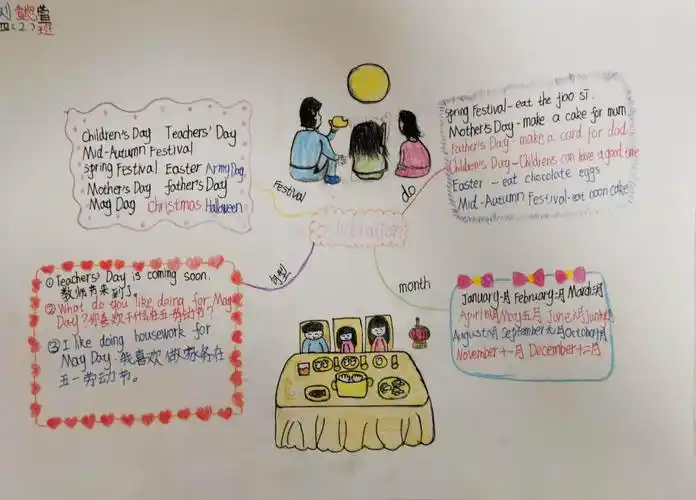 四(2)班
Children's Day Teachers' Day
Mid-Autumn Festival
spring Festival Easter Army Day
Mother's Day father's Day
Mag Day Christmas Halloween
Festival
spring Festival-eat the jiao si.
Mother's Day-make a cake for mum
Father's Day-make a card for dad
Children's Day-Children's can have a good time
Easter - eat chocolate eggs
Mid-Autumn Festival-eat noon cake
do
句型
① Teachers' Day is coming soon.
教师节来到了
② What do you like doing for Mag
Day?你喜欢干什么在五一劳动节?
③ I like doing housework for
Mag Day 我喜欢做家务在
五一劳动节。
month
January一月 February二月 March三月
April四月 May五月 June六月 July七月
August八月 September九月 October十月
November十一月 December十二月